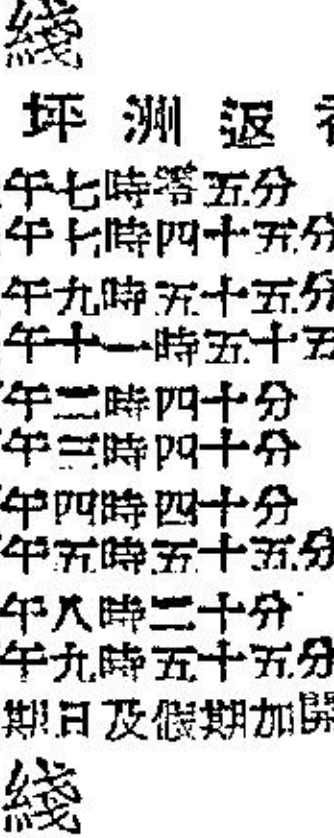 綫
坪洲返
午七時零五分
午七時四十五分
午九時五十五分
午十一時五十五
午二時四十分
午三時四十分
午四時四十分
午五時五十五分
午八時二十分
午九時五十五分
期日及假期加開
綫